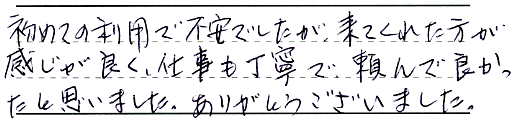 初めての利用で不安でしたが、来てくれた方が
感じが良く、仕事も丁寧で、頼んで良かっ
たと思いました。ありがとうございました。